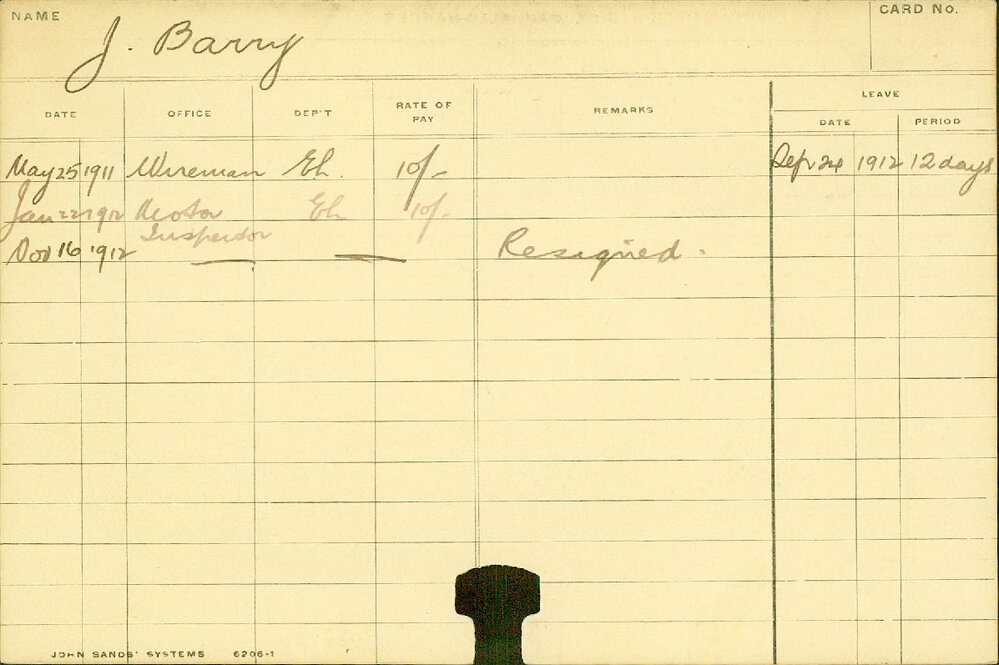 NAME J. Barry CARD No.
LEAVE
DATE OFFICE DEP'T RATE OF PAY REMARKS DATE PERIOD
May 25 1911 Wireman El. 10/- Sepr 24 1912 12 days
Jan 22 1912 Motor El 10/-
Inspector
Nov 16 1912 — — Resigned.
JOHN SANDS' SYSTEMS 6206-1